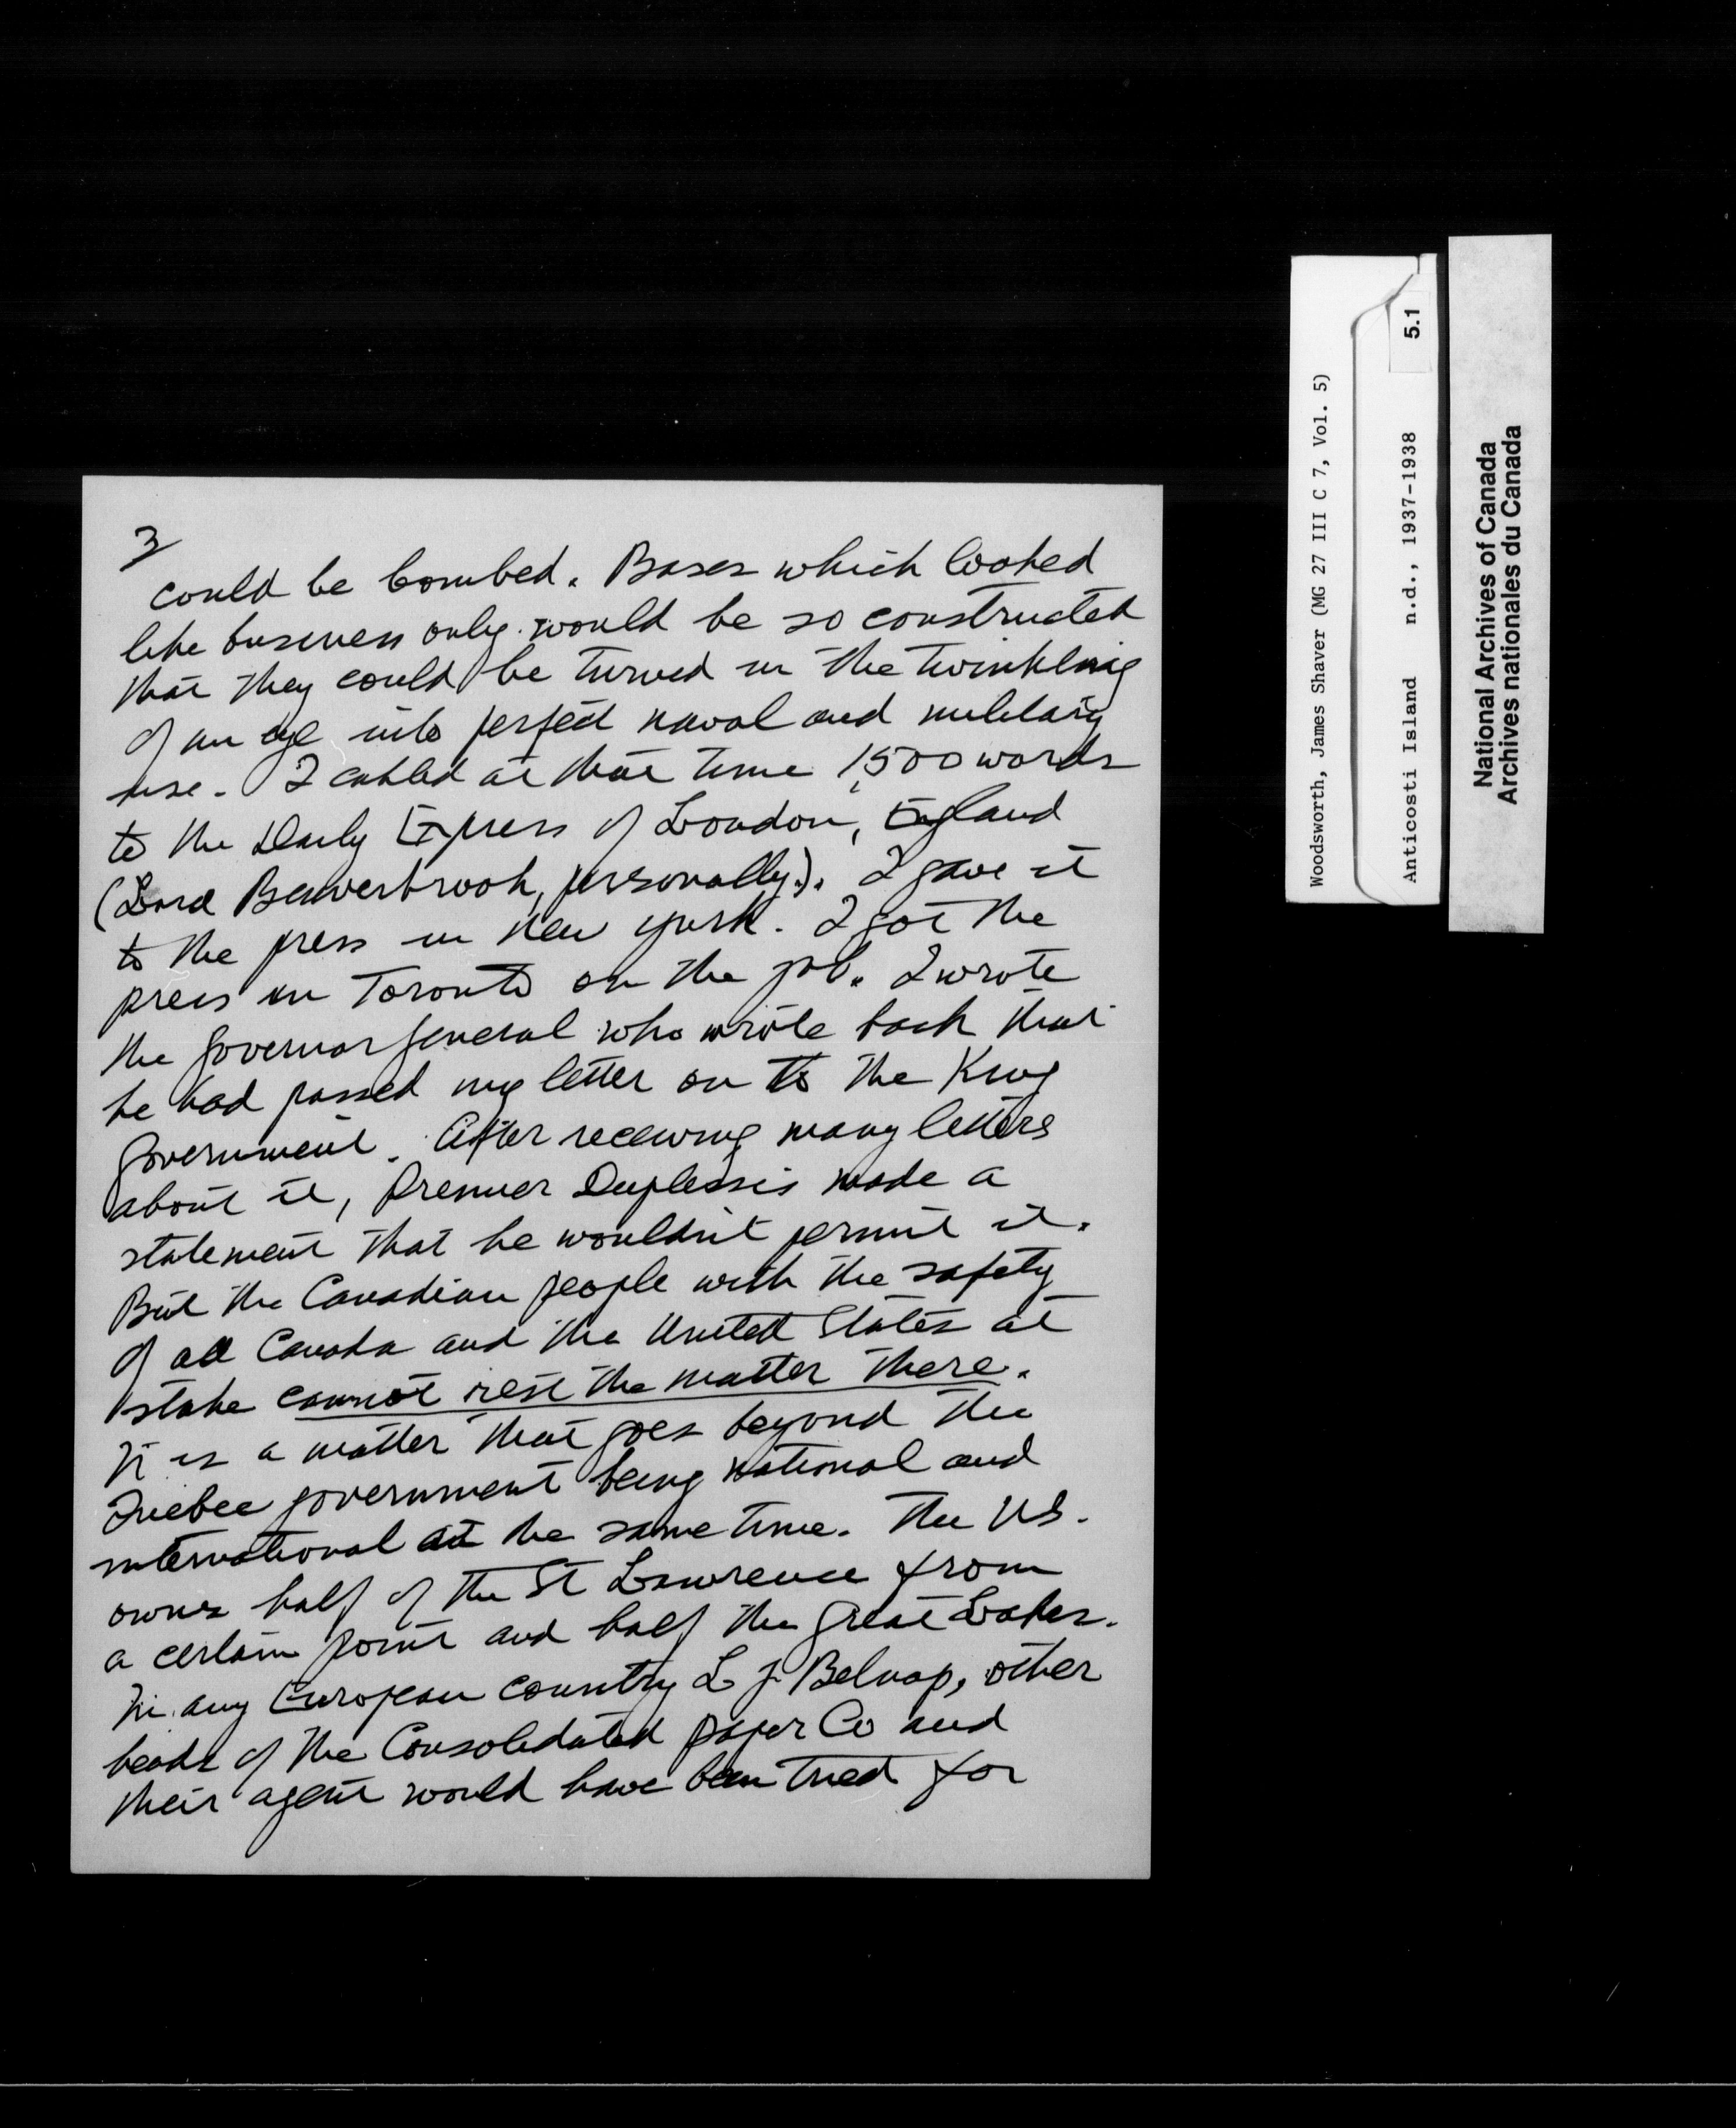 3
could be bombed. Bases which looked
like business only would be so constructed
that they could be turned in the twinkling
of an eye into perfect naval and military
use. I cabled at that time 1,500 words
to the Daily Express of London, England
(Lord Beaverbrook, personally.). I gave it
to the press in New York. I got the
press in Toronto on the job. I wrote
the Governor General who wrote back that
he had passed my letter on to the King
Government. After receiving many letters
about it, Premier Duplessis made a
statement that he wouldn't permit it.
But the Canadian people with the safety
of all Canada and the United States at
stake cannot rest the matter there.
It is a matter that goes beyond the
Quebec government being national and
international at the same time. The US.
owns half of the St Lawrence from
a certain point and half the Great Lakes.
In any European country L J. Belnap, other
heads of the Consolidated paper Co and
their agent would have been tried for
Woodsworth, James Shaver (MG 27 III C 7, Vol. 5)
Anticosti Island n.d., 1937-1938 5.1
National Archives of Canada
Archives nationales du Canada